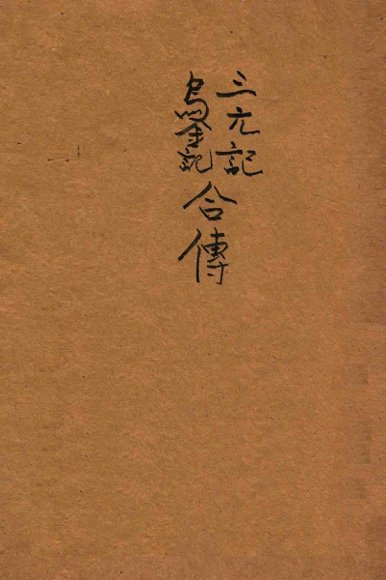 三元記
烏金記
合傳